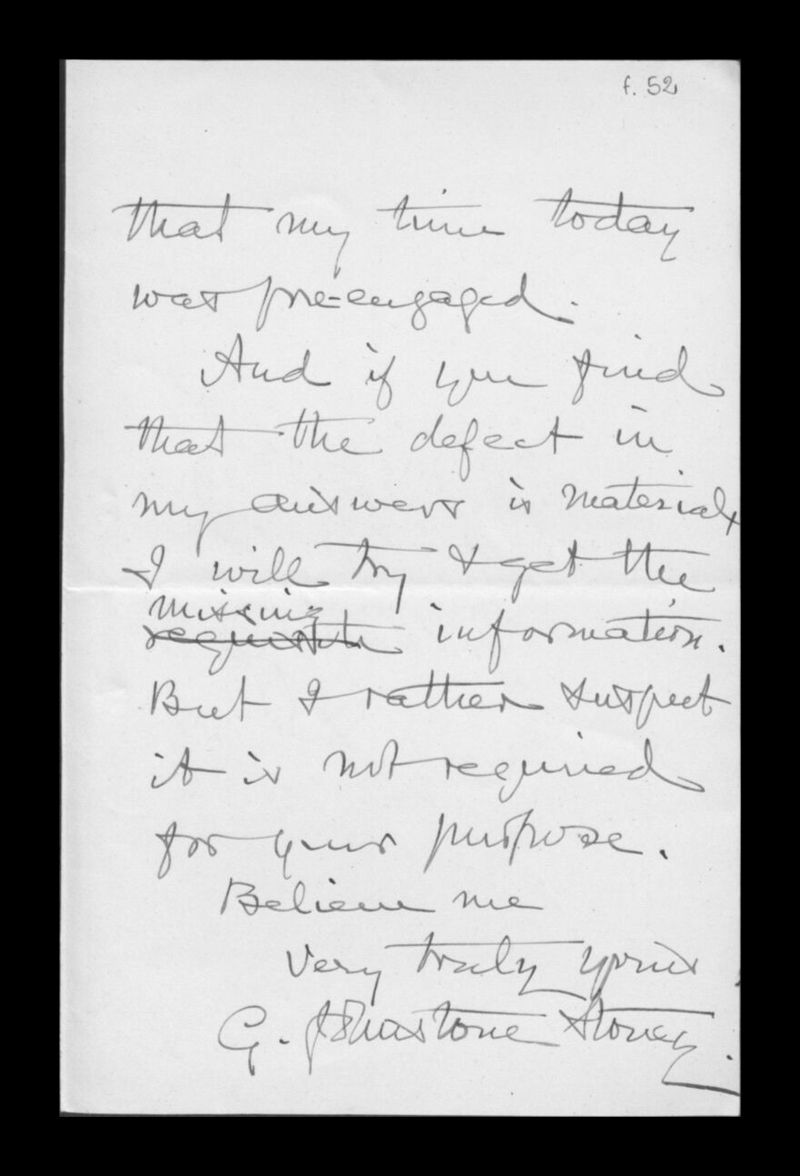 f. 52
that my time today
was pre=engaged.
And if you find
that the defect in
my answers is material,
I will try & get the
missing
requisite information.
But I rather suspect
it is not required
for your purpose.
Believe me
Very truly yours,
G. Johnstone Stoney.